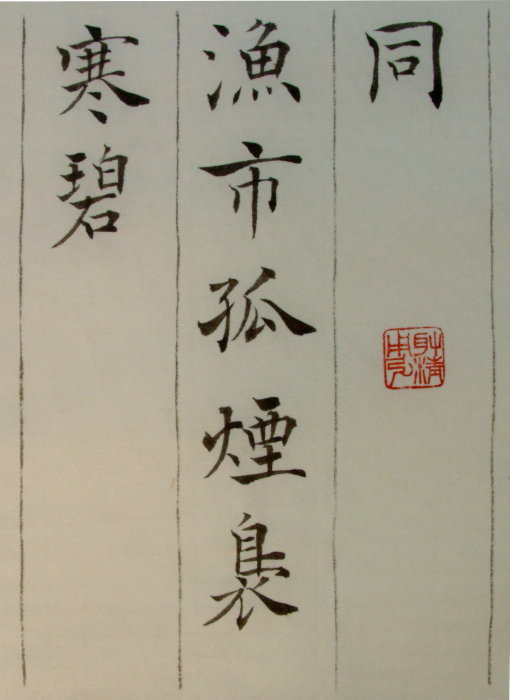 同
漁市孤煙裊
寒碧